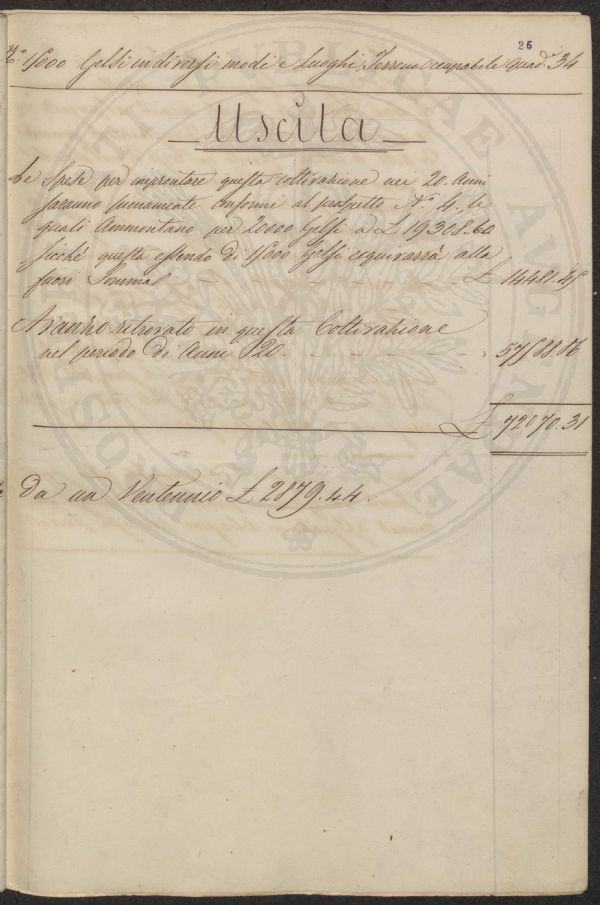 N.° 15000 Gelsi in diversi modi e Luoghi, Terreno occupabile quad.ⁱ 34
26
Uscita
Le Spese per improntare questa coltivazione nei 20. Anni
saranno pienamente conformi al prospetto N.° 4., le
quali Ammontano per 20000 Gelsi a £ 19308.60
sicchè questa essendo di 15000 Gelsi equivarrà alla
fuori Somma £ 14481.45
Avanzo ritrovato in questa Coltivazione
nel periodo di Anni 20. 57588.86
£ 72070.31
da un Ventennio £ 2879.44.